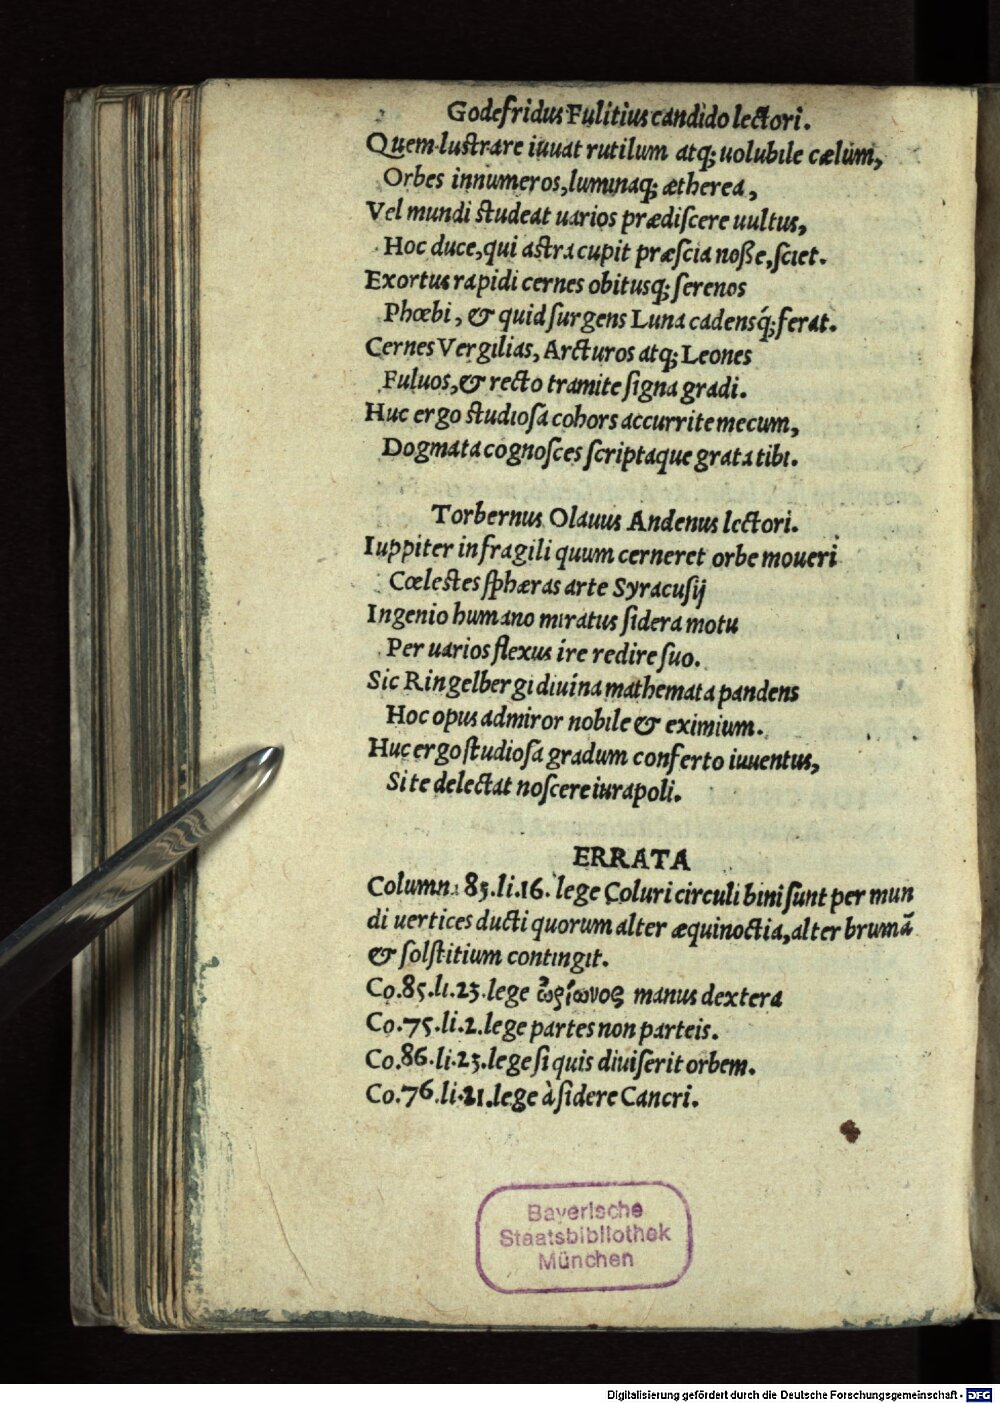 Godefridus Fulitius candido lectori.
Quem lustrare iuuat rutilum atq; uolubile cælum,
Orbes innumeros, luminaq; ætherea,
Vel mundi studeat uarios prædiſcere uultus,
Hoc duce, qui astra cupit præſcia noße, ſciet.
Exortus rapidi cernes obitusq; ſerenos
Phœbi, & quid ſurgens Luna cadensq́; ferat.
Cernes Vergilias, Arcturos atq; Leones
Fuluos, & recto tramite ſigna gradi.
Huc ergo studioſa cohors accurrite mecum,
Dogmata cognoſces ſcriptaque grata tibi.
Torbernus Olauus Andenus lectori.
Iuppiter in fragili quum cerneret orbe moueri
Cœlestes ſphæras arte Syracuſij
Ingenio humano miratus ſidera motu
Per uarios flexus ire redire ſuo.
Sic Ringelbergi diuina mathemata pandens
Hoc opus admiror nobile & eximium.
Huc ergo ſtudioſa gradum conferto iuuentus,
Si te delectat noſcere iura poli.
ERRATA
Column. 85. li. 16. lege Coluri circuli bini ſunt per mun
di uertices ducti quorum alter æquinoctia, alter brumã
& ſolſtitium contingit.
Co. 85. li. 23. lege ὠρίωνος manus dextera
Co. 75. li. 2. lege partes non parteis.
Co. 86. li. 23. lege ſi quis diuiſerit orbem.
Co. 76. li. 21. lege à ſidere Cancri.
Bayerische
Staatsbibliothek
München
Digitalisierung gefördert durch die Deutsche Forschungsgemeinschaft - DFG